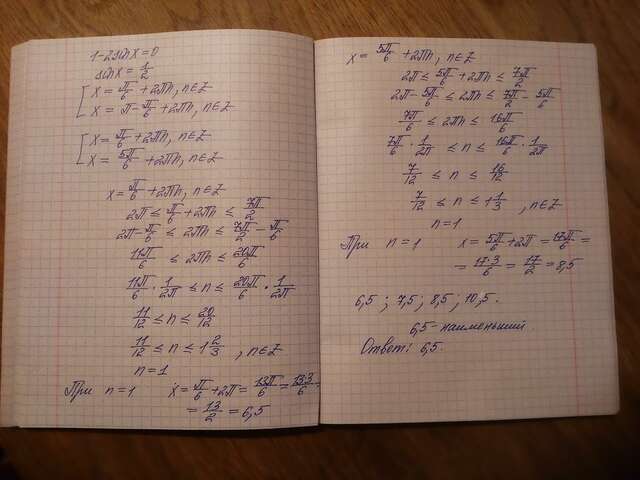 1-2sinx=0
sinx=1/2
[ x = π/6 + 2πn, n∈Z
[ x = π - π/6 + 2πn, n∈Z
[ x = π/6 + 2πn, n∈Z
[ x = 5π/6 + 2πn, n∈Z
x = π/6 + 2πn, n∈Z
2π ≤ π/6 + 2πn ≤ 7π/2
2π - π/6 ≤ 2πn ≤ 7π/2 - π/6
11π/6 ≤ 2πn ≤ 20π/6
11π/6 · 1/2π ≤ n ≤ 20π/6 · 1/2π
11/12 ≤ n ≤ 20/12
11/12 ≤ n ≤ 1 2/3, n∈Z
n=1
При n=1 x = π/6 + 2π = 13π/6 = 13·3/6 =
= 13/2 = 6,5
x = 5π/6 + 2πn, n∈Z
2π ≤ 5π/6 + 2πn ≤ 7π/2
2π - 5π/6 ≤ 2πn ≤ 7π/2 - 5π/6
7π/6 ≤ 2πn ≤ 16π/6
7π/6 · 1/2π ≤ n ≤ 16π/6 · 1/2π
7/12 ≤ n ≤ 16/12
7/12 ≤ n ≤ 1 1/3, n∈Z
n=1
При n=1 x = 5π/6 + 2π = 17π/6 =
= 17·3/6 = 17/2 = 8,5
6,5 ; 7,5 ; 8,5 ; 10,5.
6,5 - наименьший.
Ответ: 6,5.